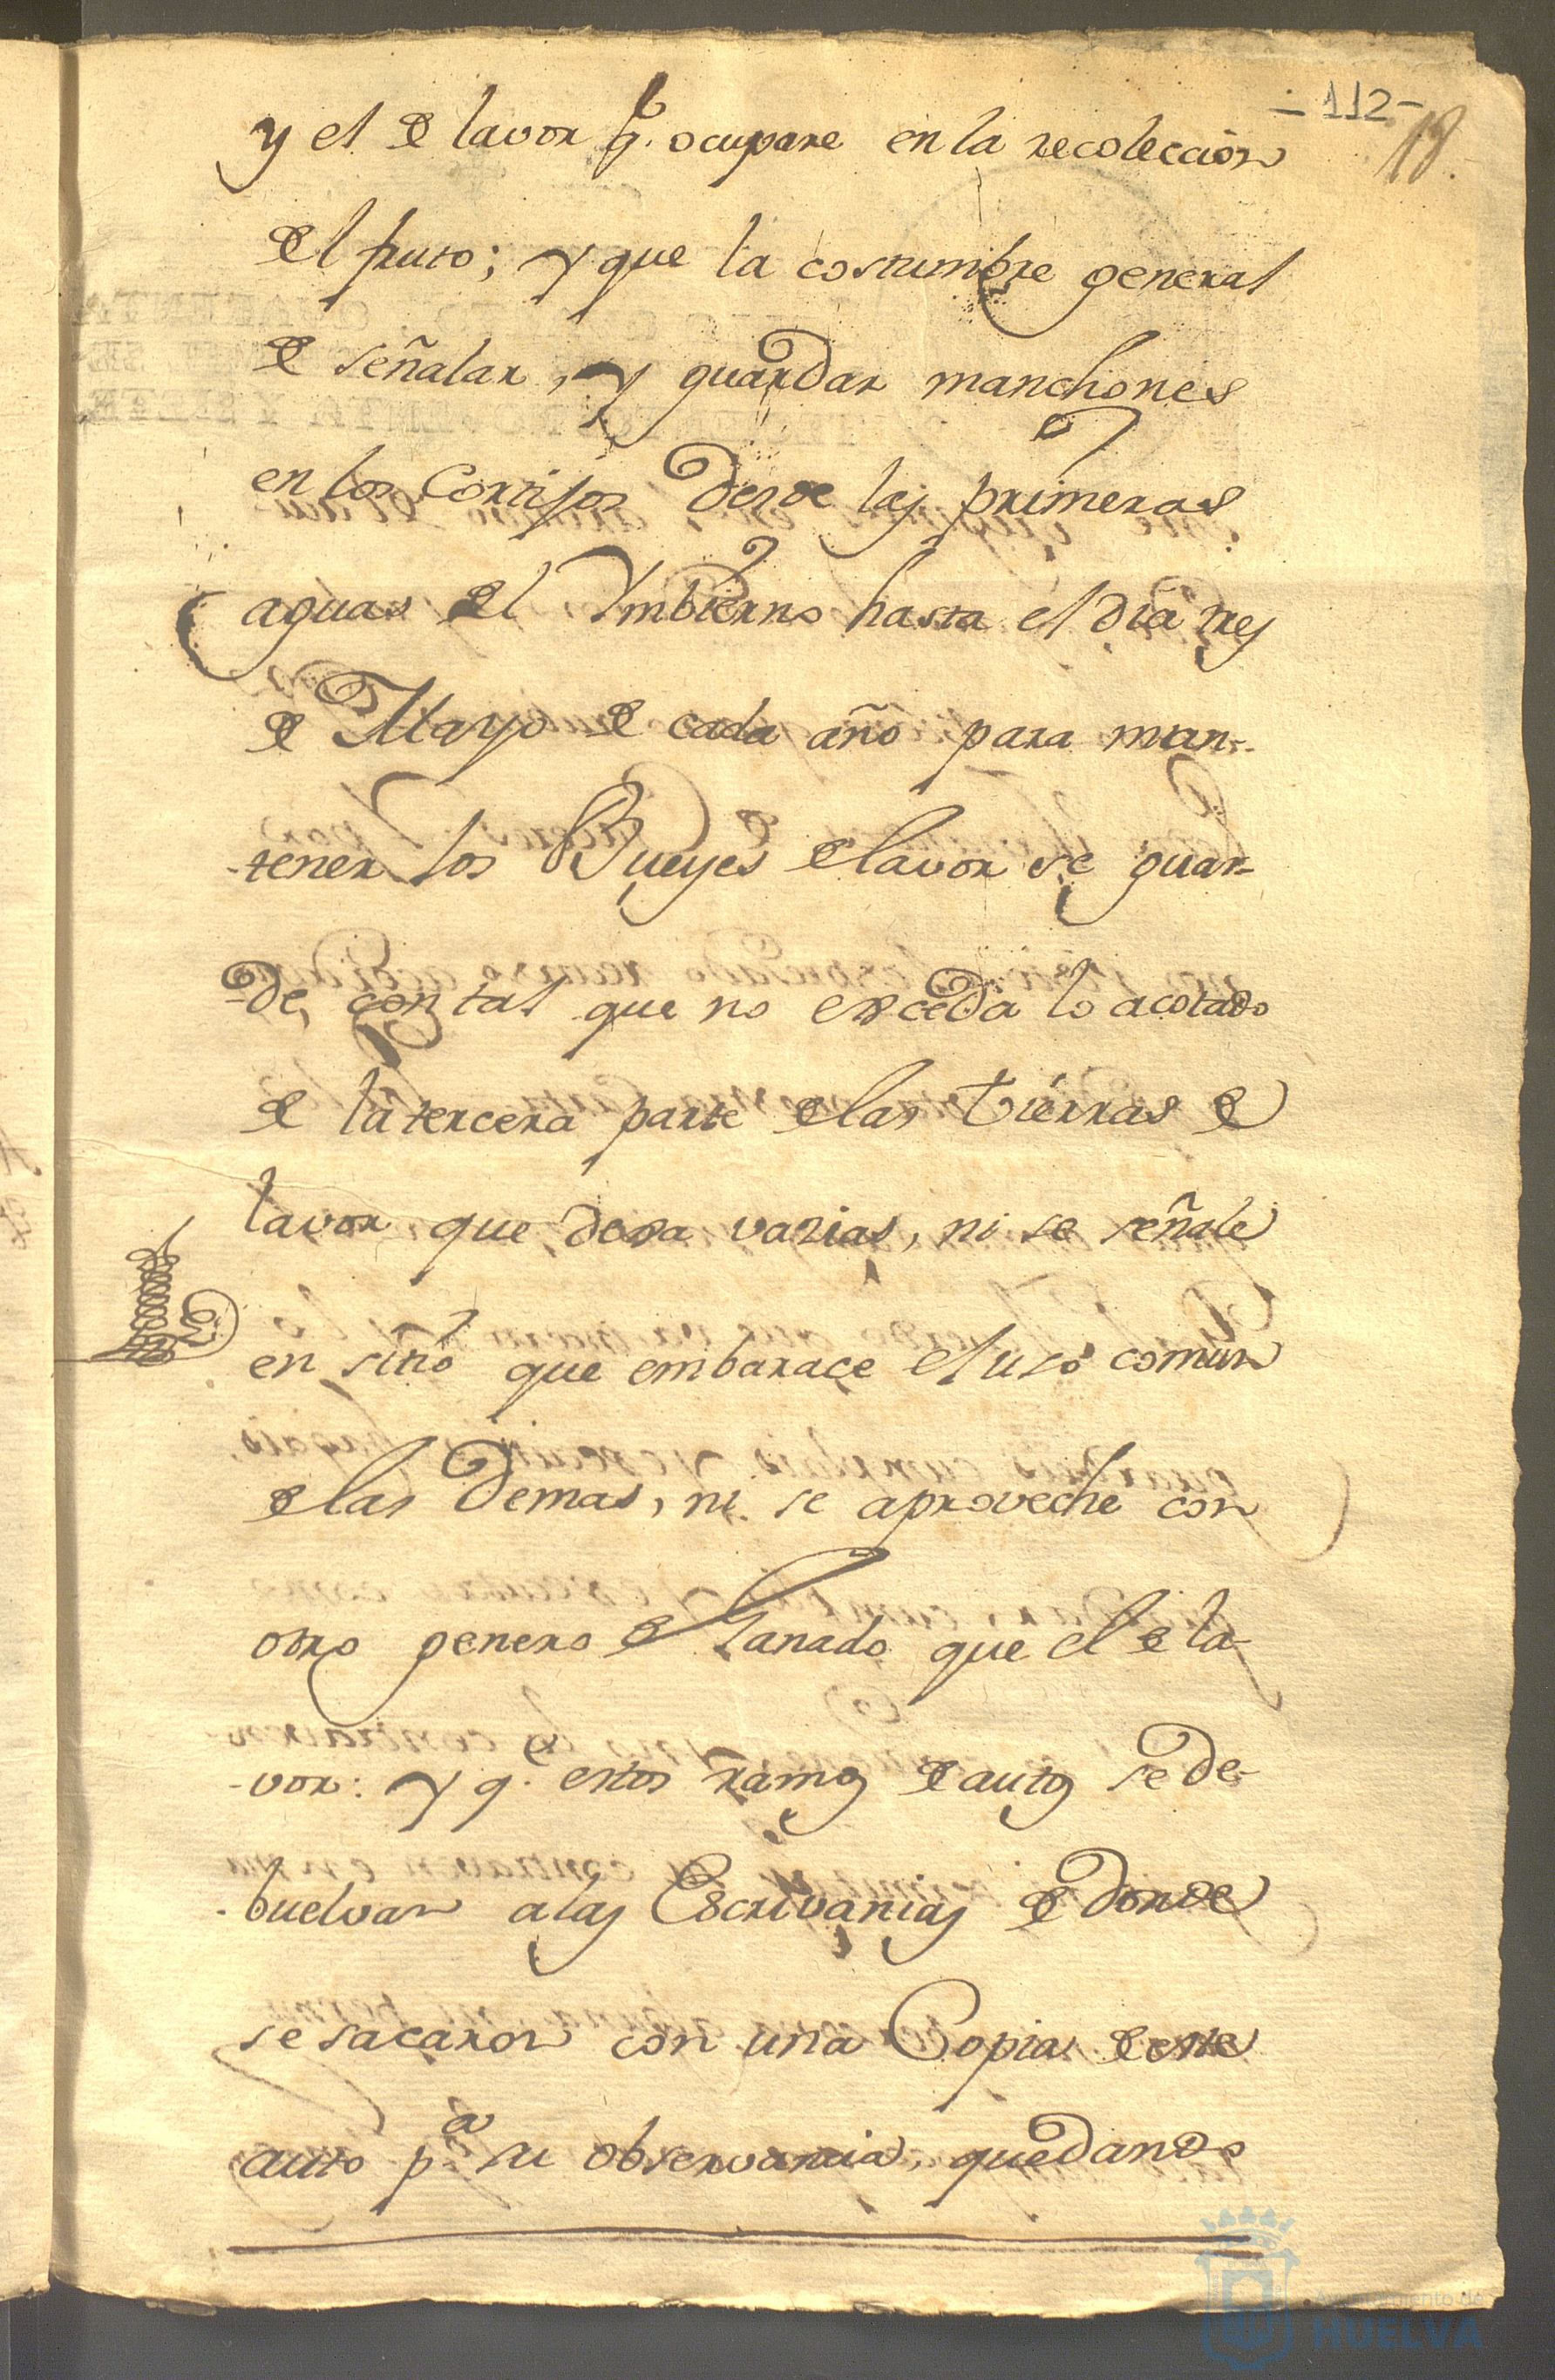 -112-
18.
y el de lavor q. ocupare en la recolección
del fruto; y que la costumbre general
de señalar, y guardar manchones
en los Cortijos desde las primeras
aguas del Ymbierno hasta el dia tres
de Mayo de cada año para man-
-tener los Bueyes de lavor se guar-
-de, con tal que no exceda lo acotado
de la tercera parte de las tierras de
lavor que dexa varias, ni se señale
en sitio que embarace el uso comun
de las demas, ni se aproveche con
otro genero de Ganado que el de la-
-vor: y q.e estos ramos de autos se de-
-buelvan a las Escrivanias de donde
se sacaron con una Copia de este
auto p.a su observancia, quedando
Ayuntamiento de
HUELVA